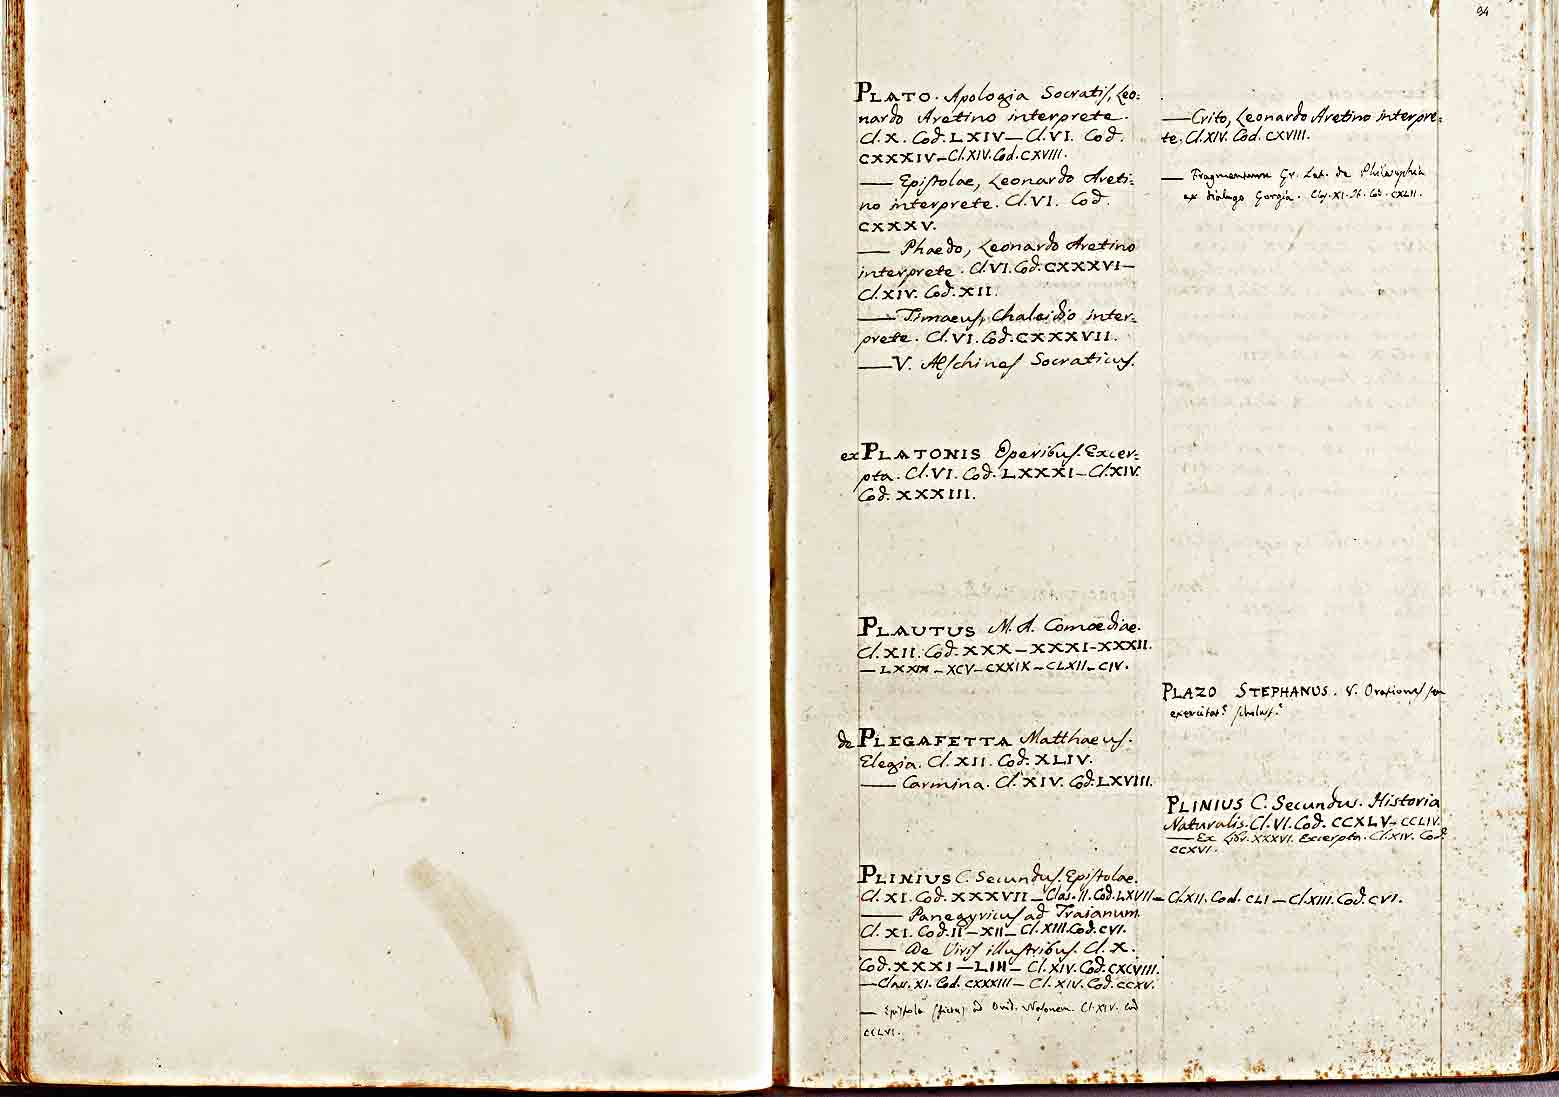 94
PLATO. Apologia Socratis, Leo:
nardo Aretino interprete.
Cl. X. Cod. LXIV — Cl. VI. Cod.
CXXXIV — Cl. XIV. Cod. CXVIII.
— Epistolae, Leonardo Areti:
no interprete. Cl. VI. Cod.
CXXXV.
— Phaedo, Leonardo Aretino
interprete. Cl. VI. Cod. CXXXVI —
Cl. XIV. Cod. XII.
— Timaeus, Chalcidio inter:
prete. Cl. VI. Cod. CXXXVII.
— V. Aeschines Socraticus.
ex PLATONIS Operibus. Excer:
pta. Cl. VI. Cod. LXXXI — Cl. XIV.
Cod. XXXIII.
PLAUTUS M. A. Comoediae.
Cl. XII. Cod. XXX — XXXI — XXXII.
— XCV — CXXIX — CLXII — CIV.
de PLEGAFETTA Matthaeus.
Elegia. Cl. XII. Cod. XLIV.
— Carmina. Cl. XIV. Cod. LXVIII.
PLINIUS C. Secundus. Epistolae.
Cl. XI. Cod. XXXVII — Clas. II. Cod. LXVII — Cl. XII. Cod. CLI — Cl. XIII. Cod. CVI.
— Panegyricus ad Traianum.
Cl. XI. Cod. II — XII — Cl. XIII. Cod. CVI.
— De Viris illustribus. Cl. X.
Cod. XXXI — LIII — Cl. XIV. Cod. CXCVIII.
— Clas. XI. Cod. CXXXIII — Cl. XIV. Cod. CCXV.
— Epistola (ficta) ad Ovid. Nasonem. Cl. XIV. Cod
CCLVI.
— Crito, Leonardo Aretino interpre:
te. Cl. XIV. Cod. CXVIII.
— Fragmentum Gr. Lat. de Philosophia
ex dialogo Gorgia. Clas. XI. Cod. CXLII.
PLAZO STEPHANUS. V. Orationes seu
PLINIUS C. Secundus. Historia
Naturalis. Cl. VI. Cod. CCXLV — CCLIV.
— Ex Lib. XXXVI. Excerpta. Cl. XIV. Cod.
CCXVI.